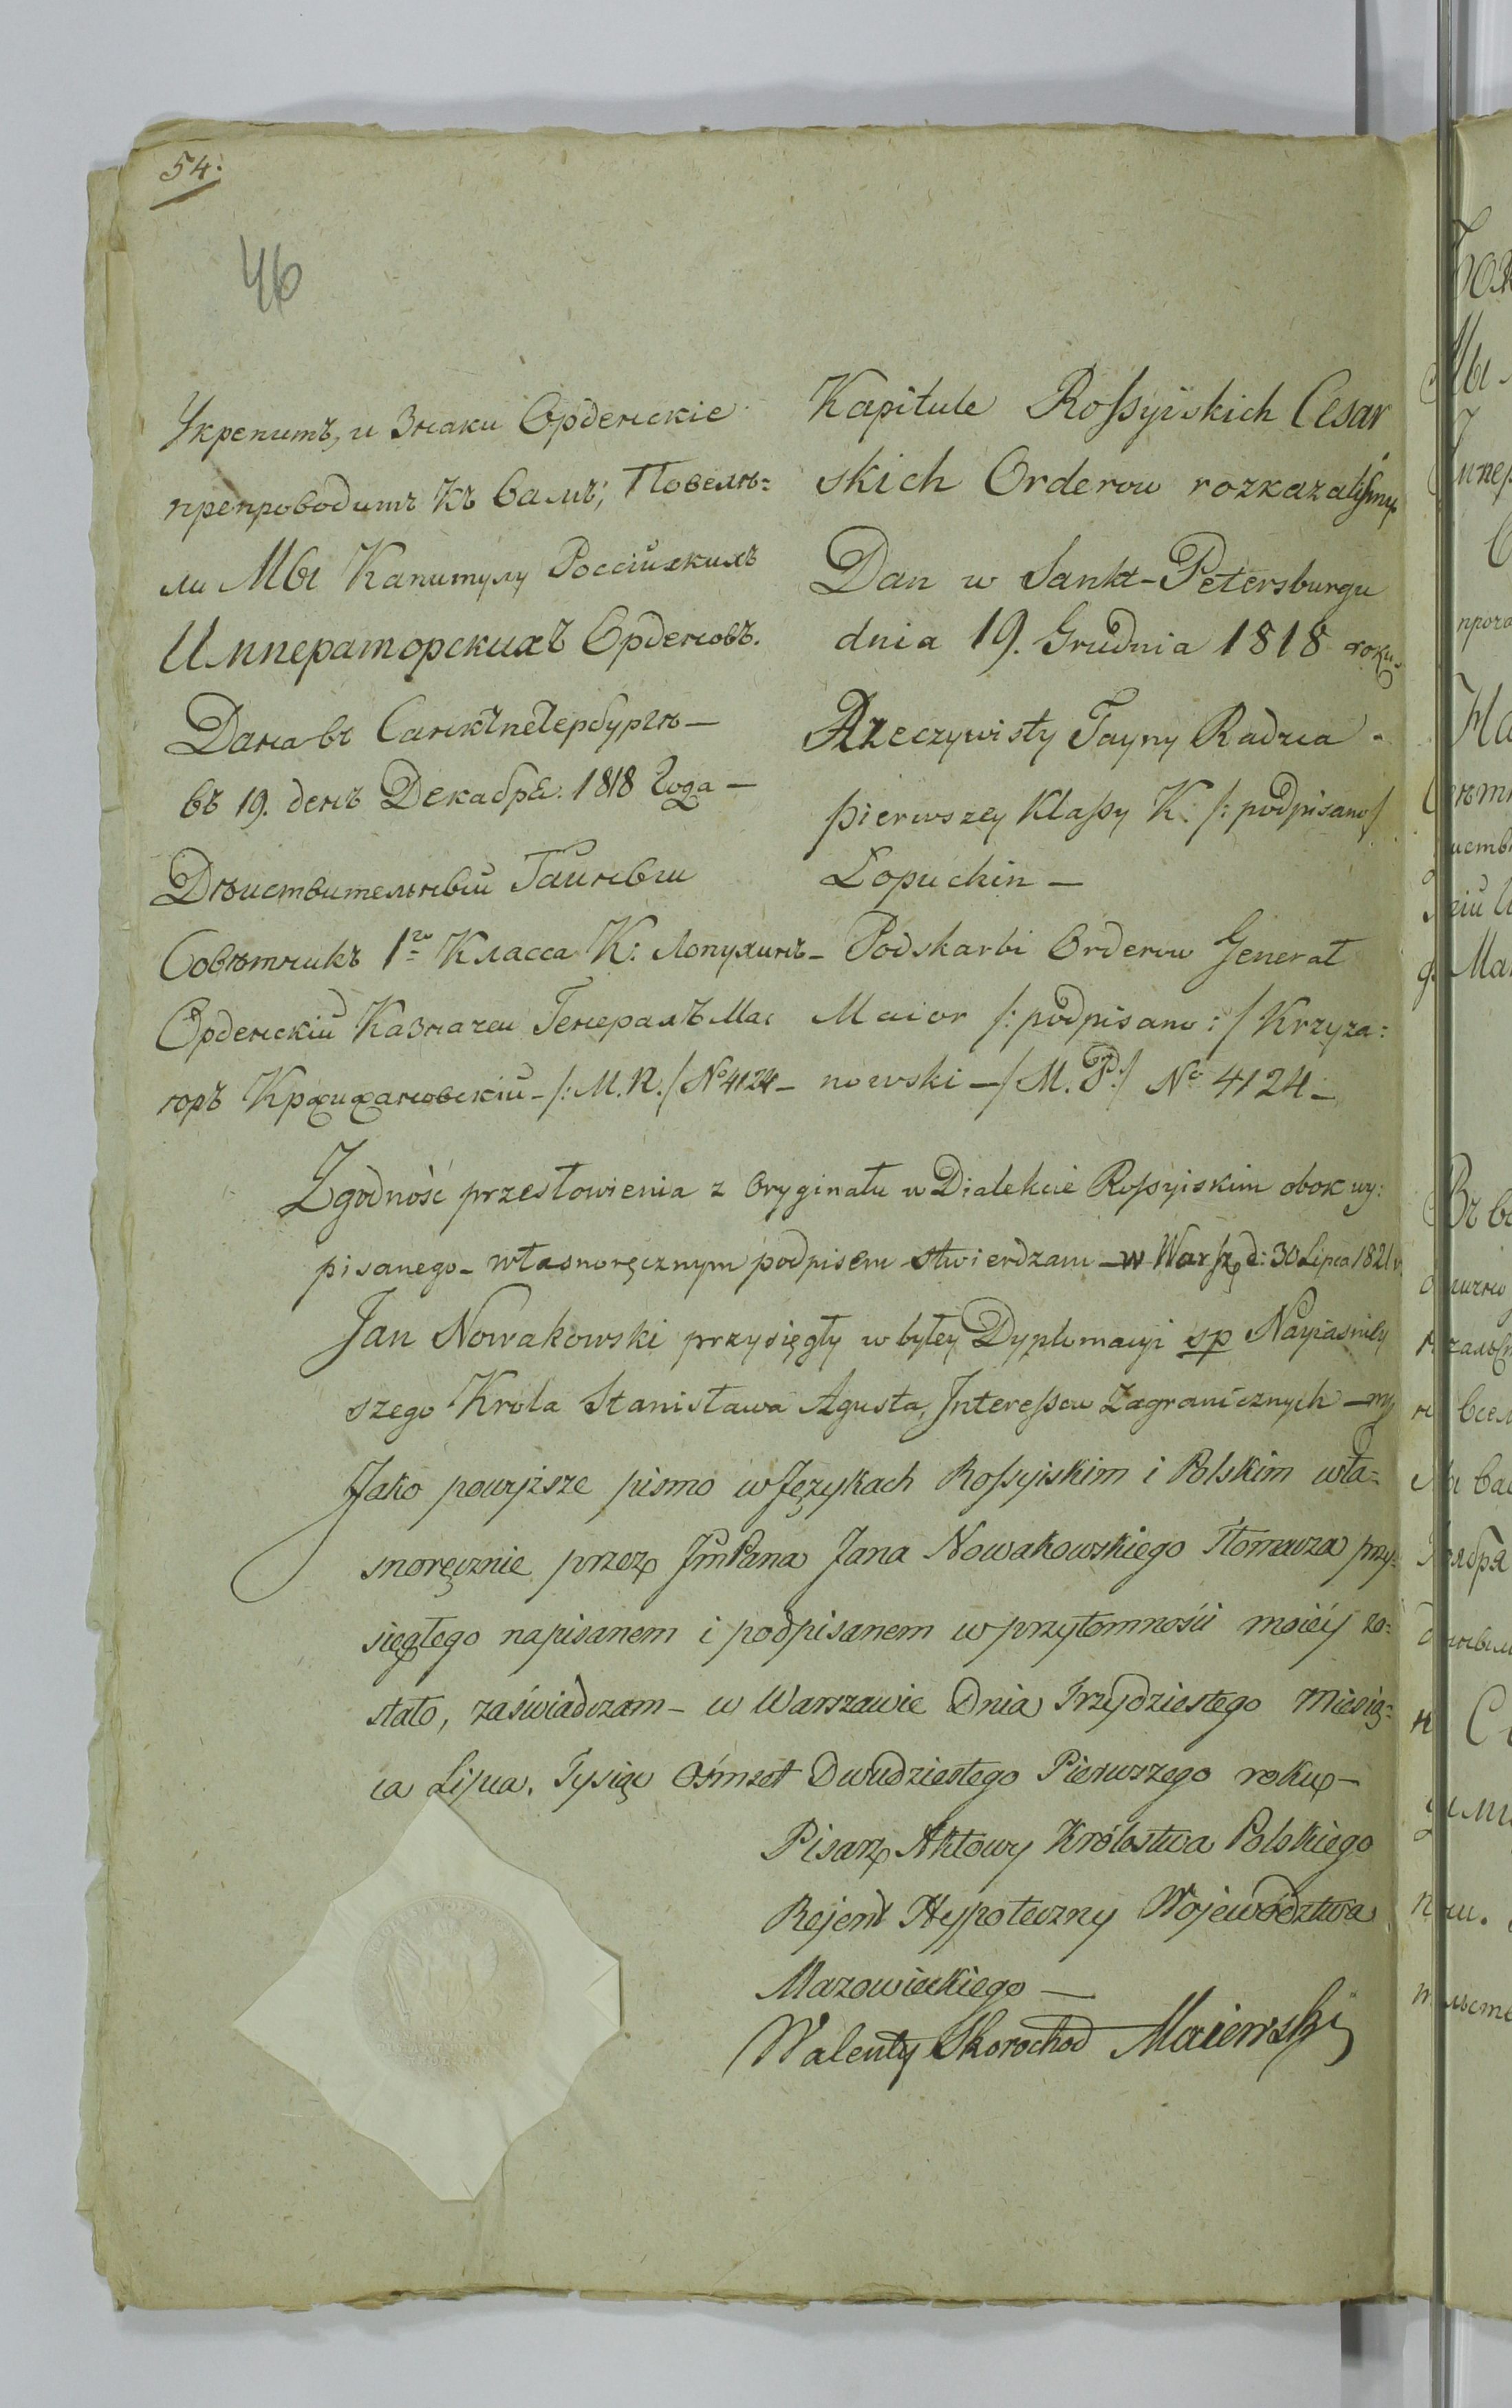 54.
46
Укрепить, и Знаки Орденскiе
препроводить къ Вамъ; Повелѣ=
ли МЫ Капитулу Россiйскихъ
Императорскихъ Орденовъ.
Дана въ Санктпетербургѣ —
въ 19. день Декабря. 1818 Года —
Дѣиствительныи Таиныи
Совѣтникъ 1го Класса К: Лопухинъ –
Орденскiй Казначеи Генералъ Маi
оръ Кржижановскiй – /: М. П. / № 4124 –
Kapitule Roſsyiskich Cesar
skich Orderow rozkazaliſmy.
Dan w Sankt-Petersburgu
dnia 19. Grudnia 1818 roku.
Rzeczywisty Tayny Radzca
pierwszey Klaſsy K: /: podpisano /
Lopuchin —
Podskarbi Orderow Generał
Maior /: podpisano : / Krzyża:
nowski — / M. P. / No 4124 —
Zgodność przesłowienia z Oryginału w Dialekcie Roſsyiskim obok wy:
pisanego – własnoręcznym podpisem stwierdzam – w Warsz d: 30 Lipca 1821 r.
Jan Nowakowski przysięgły w byłey Dyplomacyi sp Nayiaśniey
szego Krola Stanisława Agusta, Intereſsow Zagranicznych —
Jako powyższe pismo w Językach Roſsyiskim i Polskim wła=
snoręcznie przez JmPana Jana Nowakowskiego Tłomacza przy=
sięgłego napisanem i podpisanem w przytomności moiéy zo=
stało, zaświadczam – w Warszawie Dnia Trzydziestego Miesią=
ca Lipca, Tysiąc Ośmset Dwudziestego Pierwszego roku –
Pisarz Aktowy Królestwa Polskiego
Rejent Hypoteczny Województwa
Mazowieckiego —
Walenty Skorochod Maiewski